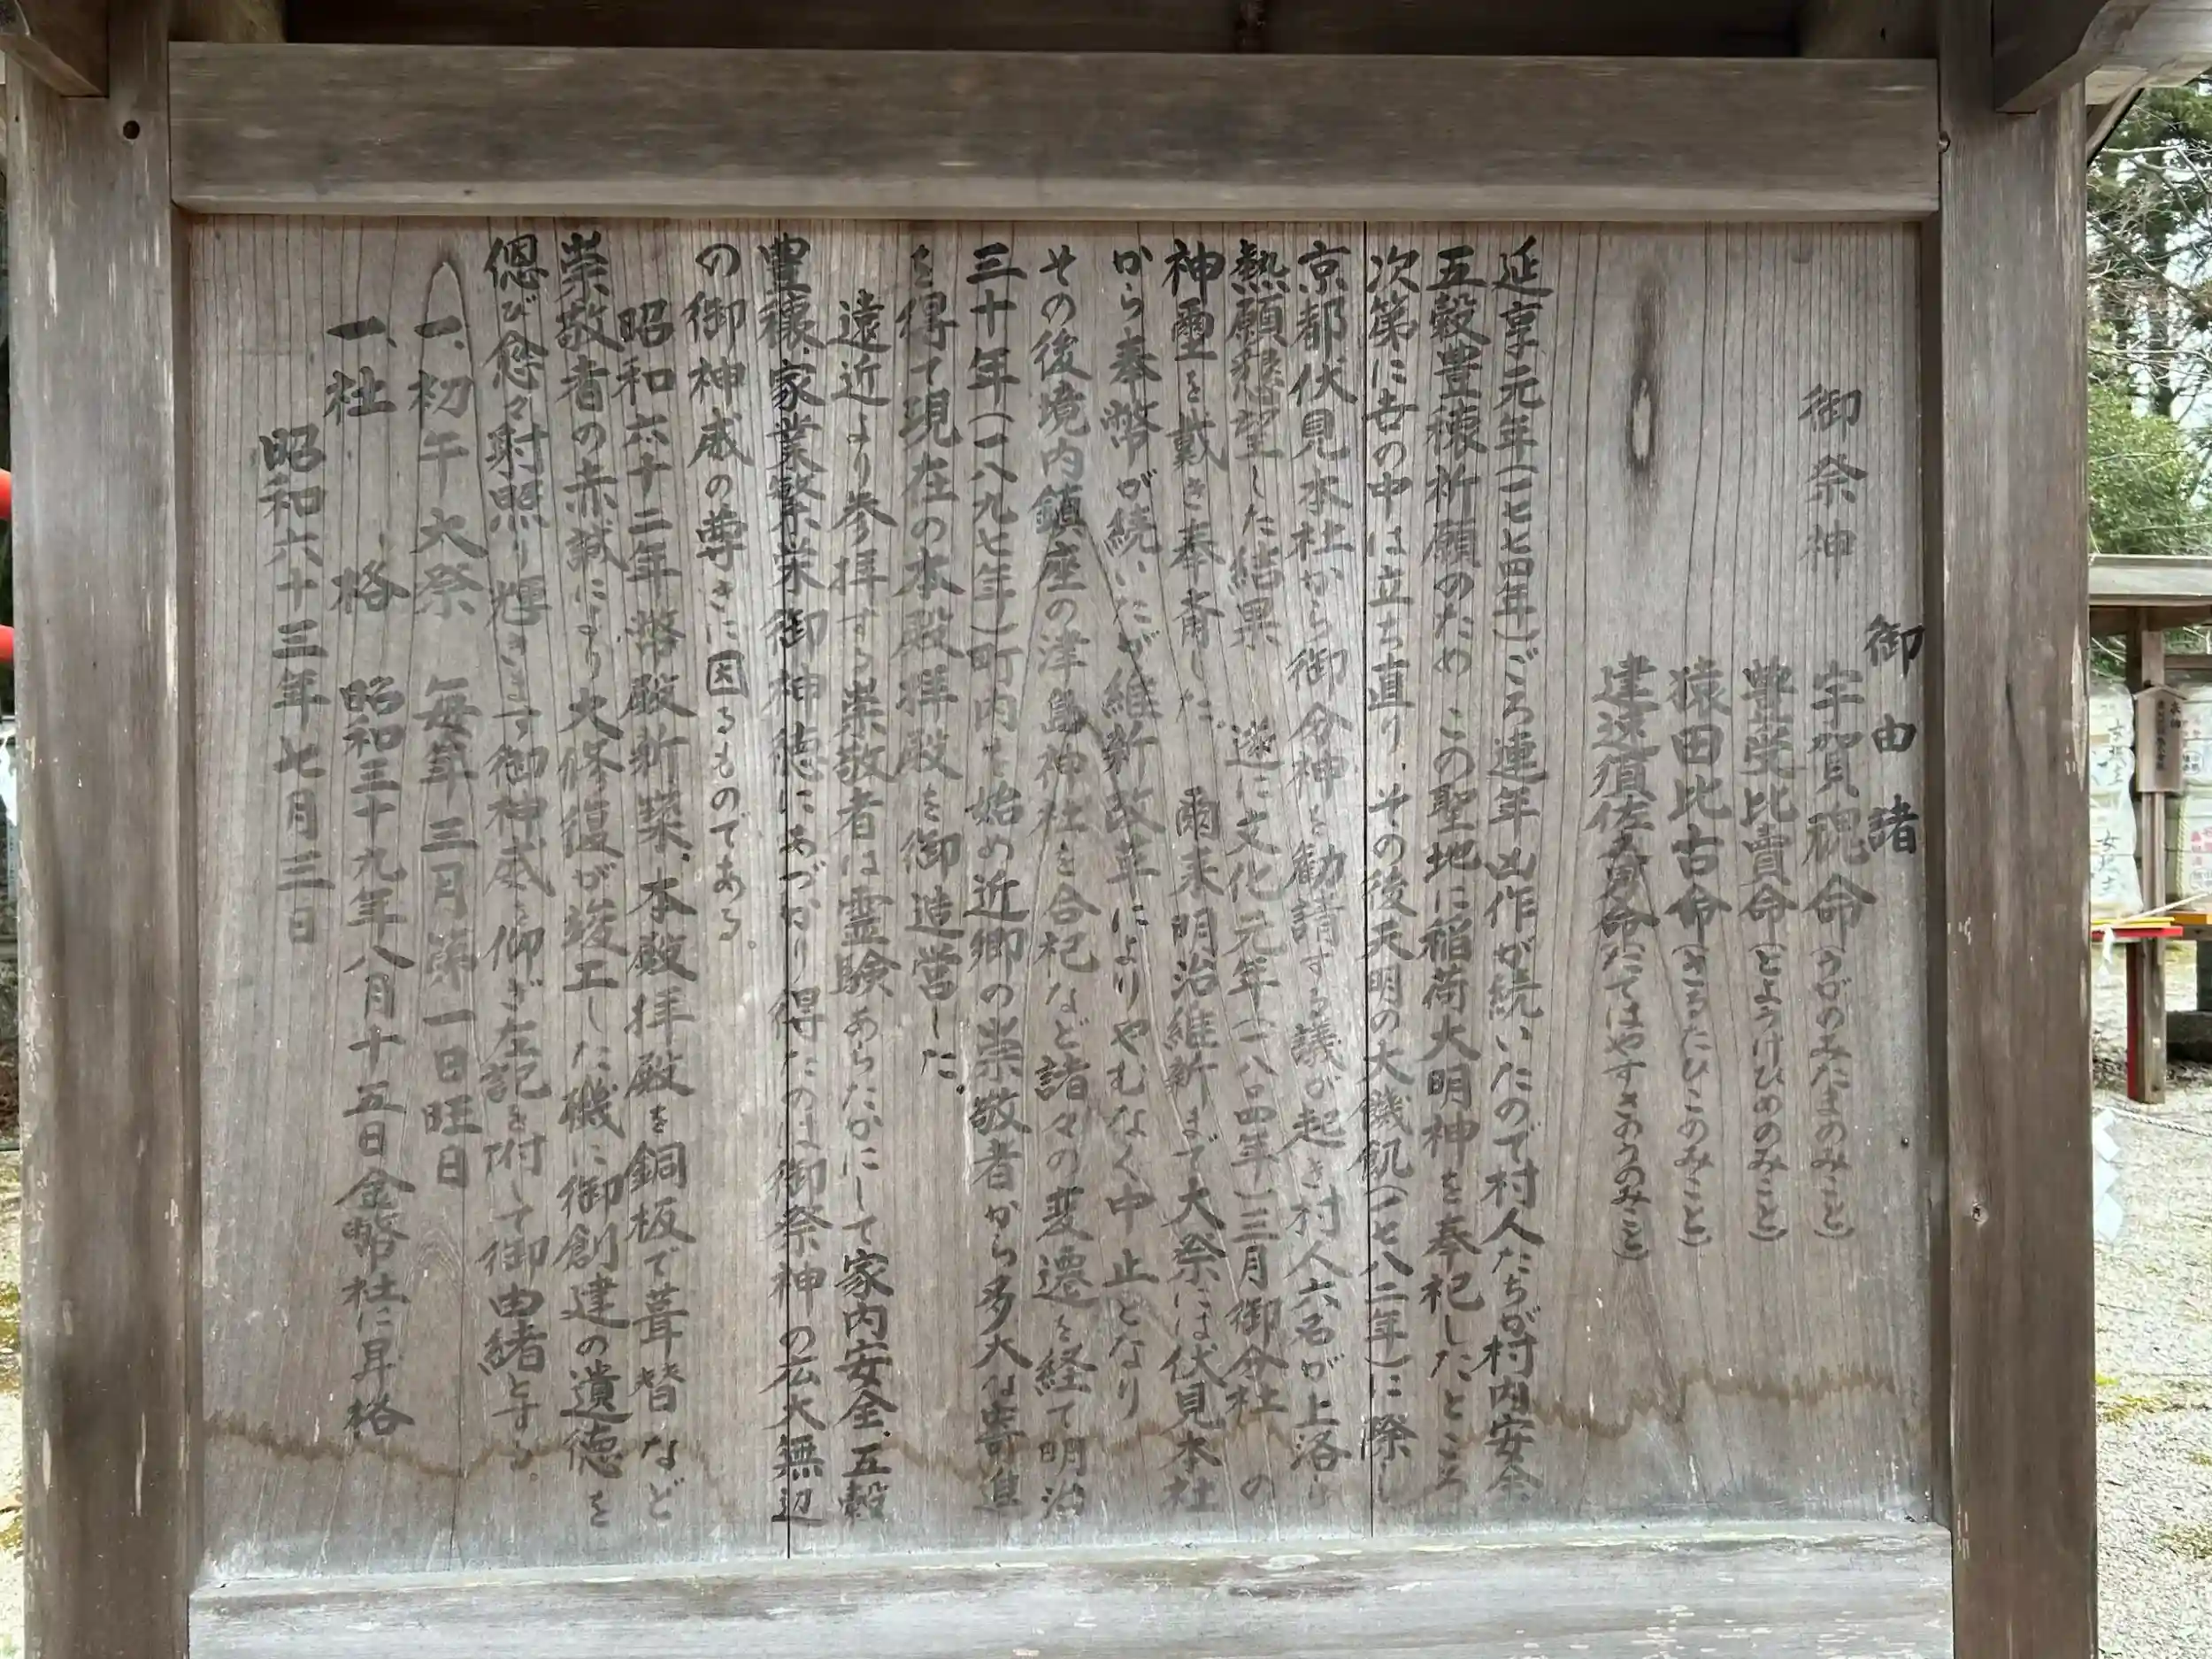 御由諸
御祭神
宇賀魂命(うがのみたまのみこと)
豊受比賣命(とようけひめのみこと)
猿田比古命(さるたひこのみこと)
建速須佐之男命(たてはやすさのうのみこと)
延享元年(一七七四年)ごろ連年凶作が続いたので村人たちが村内安全、
五穀豊穣祈願のため この聖地に稲荷大明神を奉祀したところ
次第に世の中は立ち直り、その後天明の大饑飢(一七八二年)に際し
京都伏見本社から御分神を勧請する議が起き村人六名が上洛し
熱願懇望した結果 遂に文化元年(一八〇四年)三月御分社の
神璽を戴き奉斎した。 爾来明治維新まで大祭には伏見本社
から奉幣が続いたが維新改革によりやむなく中止となり
その後境内鎮座の津島神社を合祀など諸々の変遷を経て明治
三十年(一八九七年)町内を始め近郷の崇敬者から多大な寄進
を得て現在の本殿拝殿を御造営した。
遠近より参拝する崇敬者は霊験あらたかにして家内安全、五穀
豊穣、家業繁栄、御神徳にあづかり得たのは御祭神の広大無辺
の御神威の尊きに因るものである。
昭和六十二年幣殿新築、本殿拝殿を銅板で葺替など
崇敬者の赤誠により大修復が竣工した機に御創建の遺徳を
偲び愈々射照り輝きます御神威を仰ぎ左記を附して御由緒とする。
一、初午大祭 毎年三月第一日旺日
一、社 格 昭和三十九年八月十五日金幣社に昇格
昭和六十三年七月三日